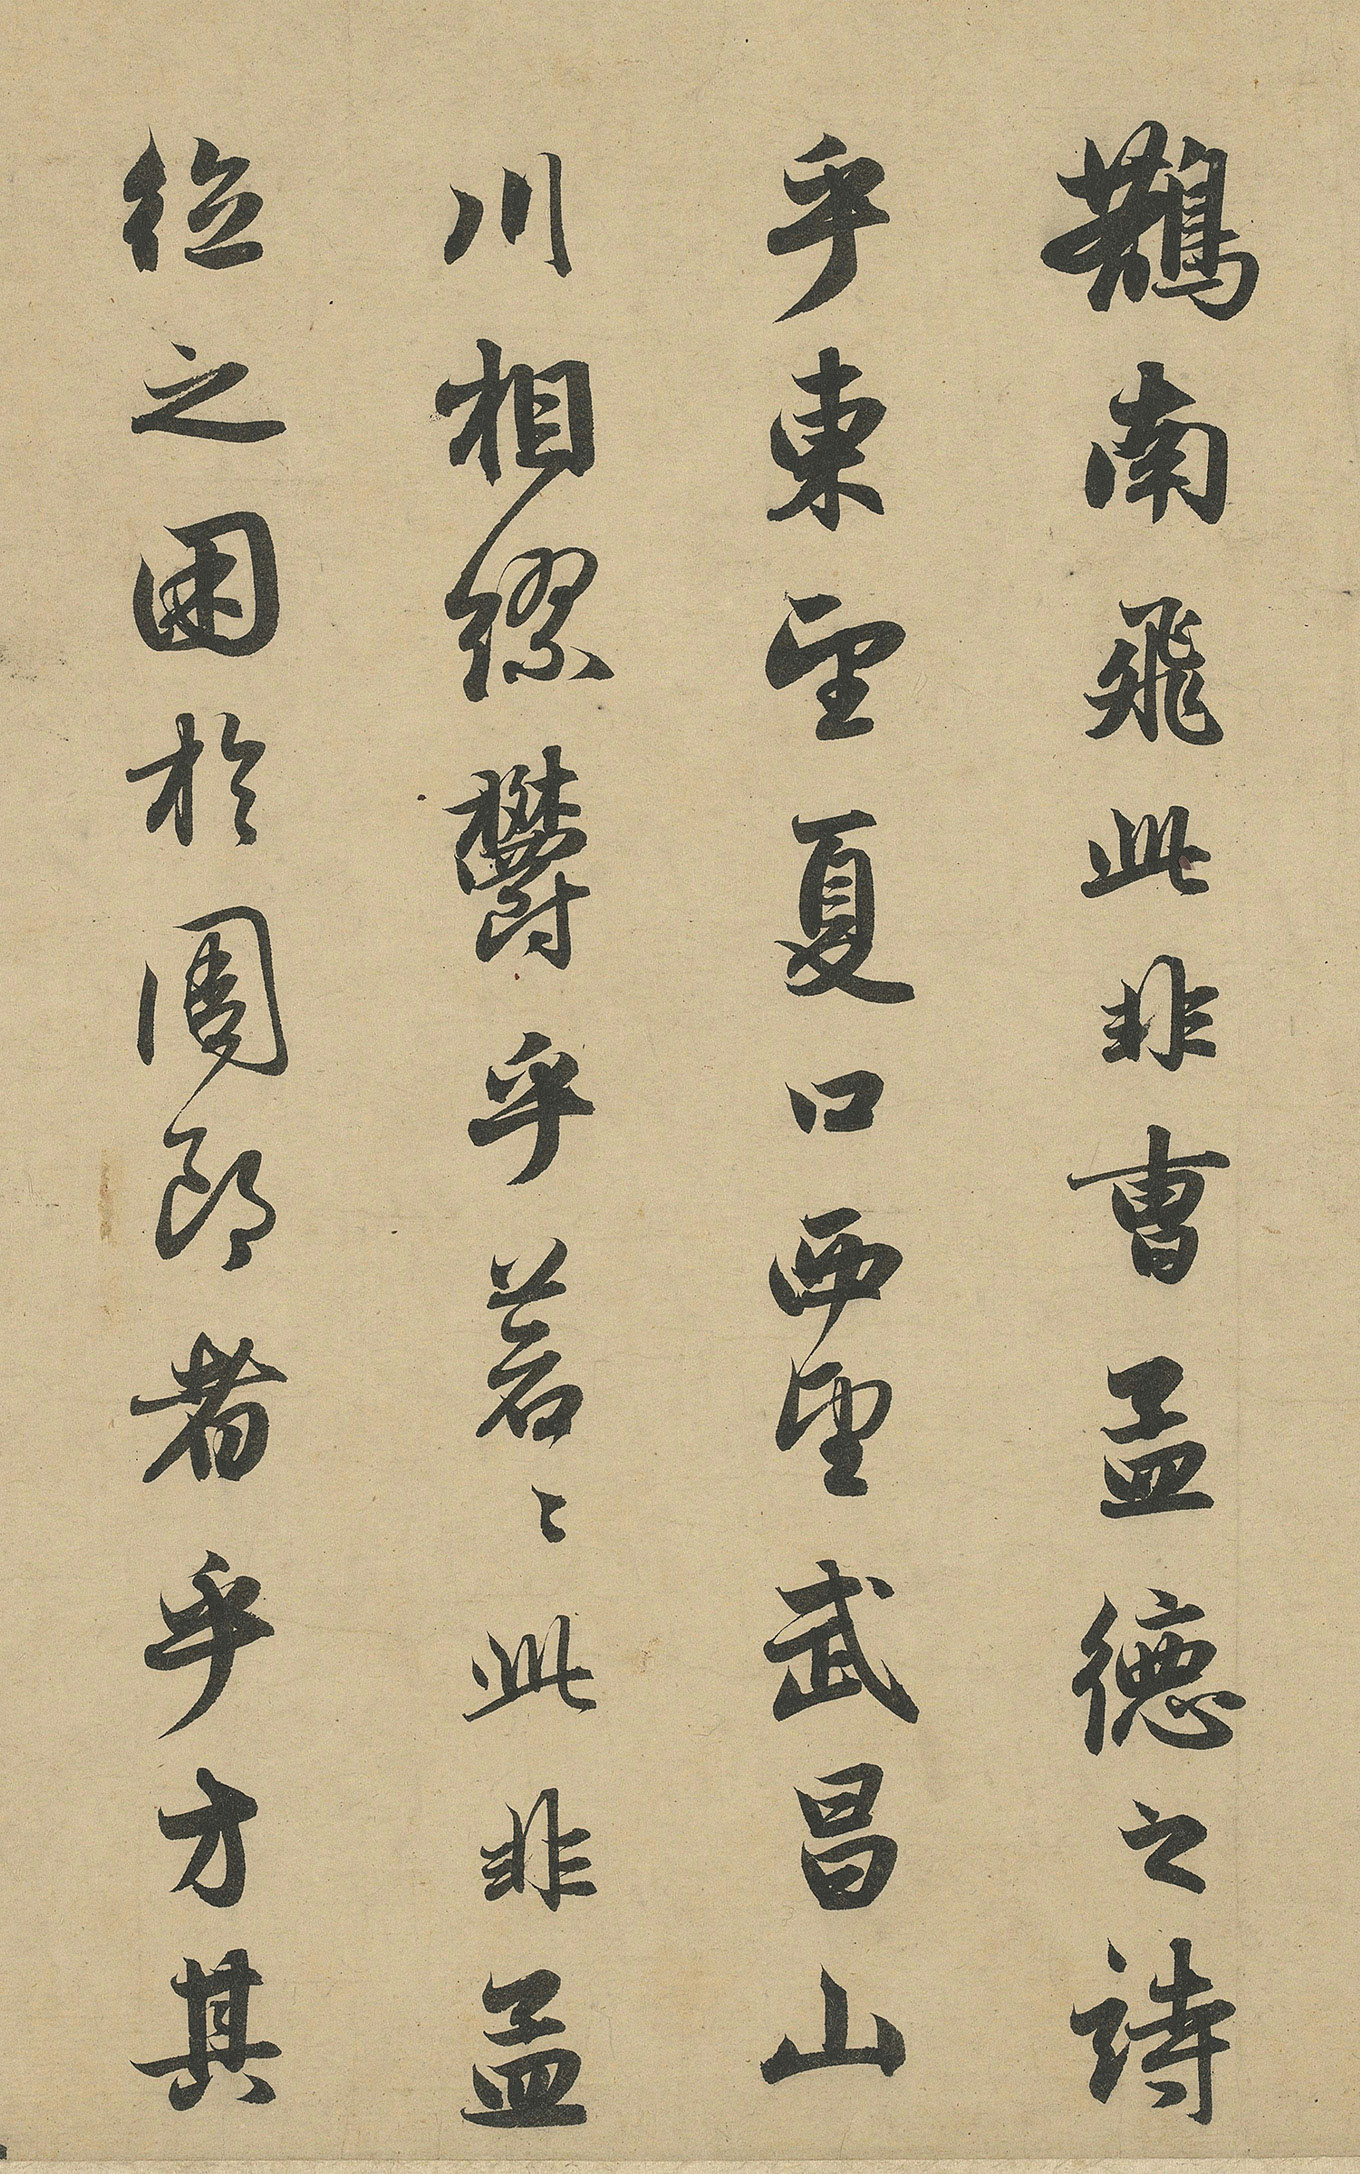 鵲南飛此非曹孟德之詩
乎東望夏口西望武昌山
川相繆鬱乎蒼〻此非孟
德之困於周郎者乎方其